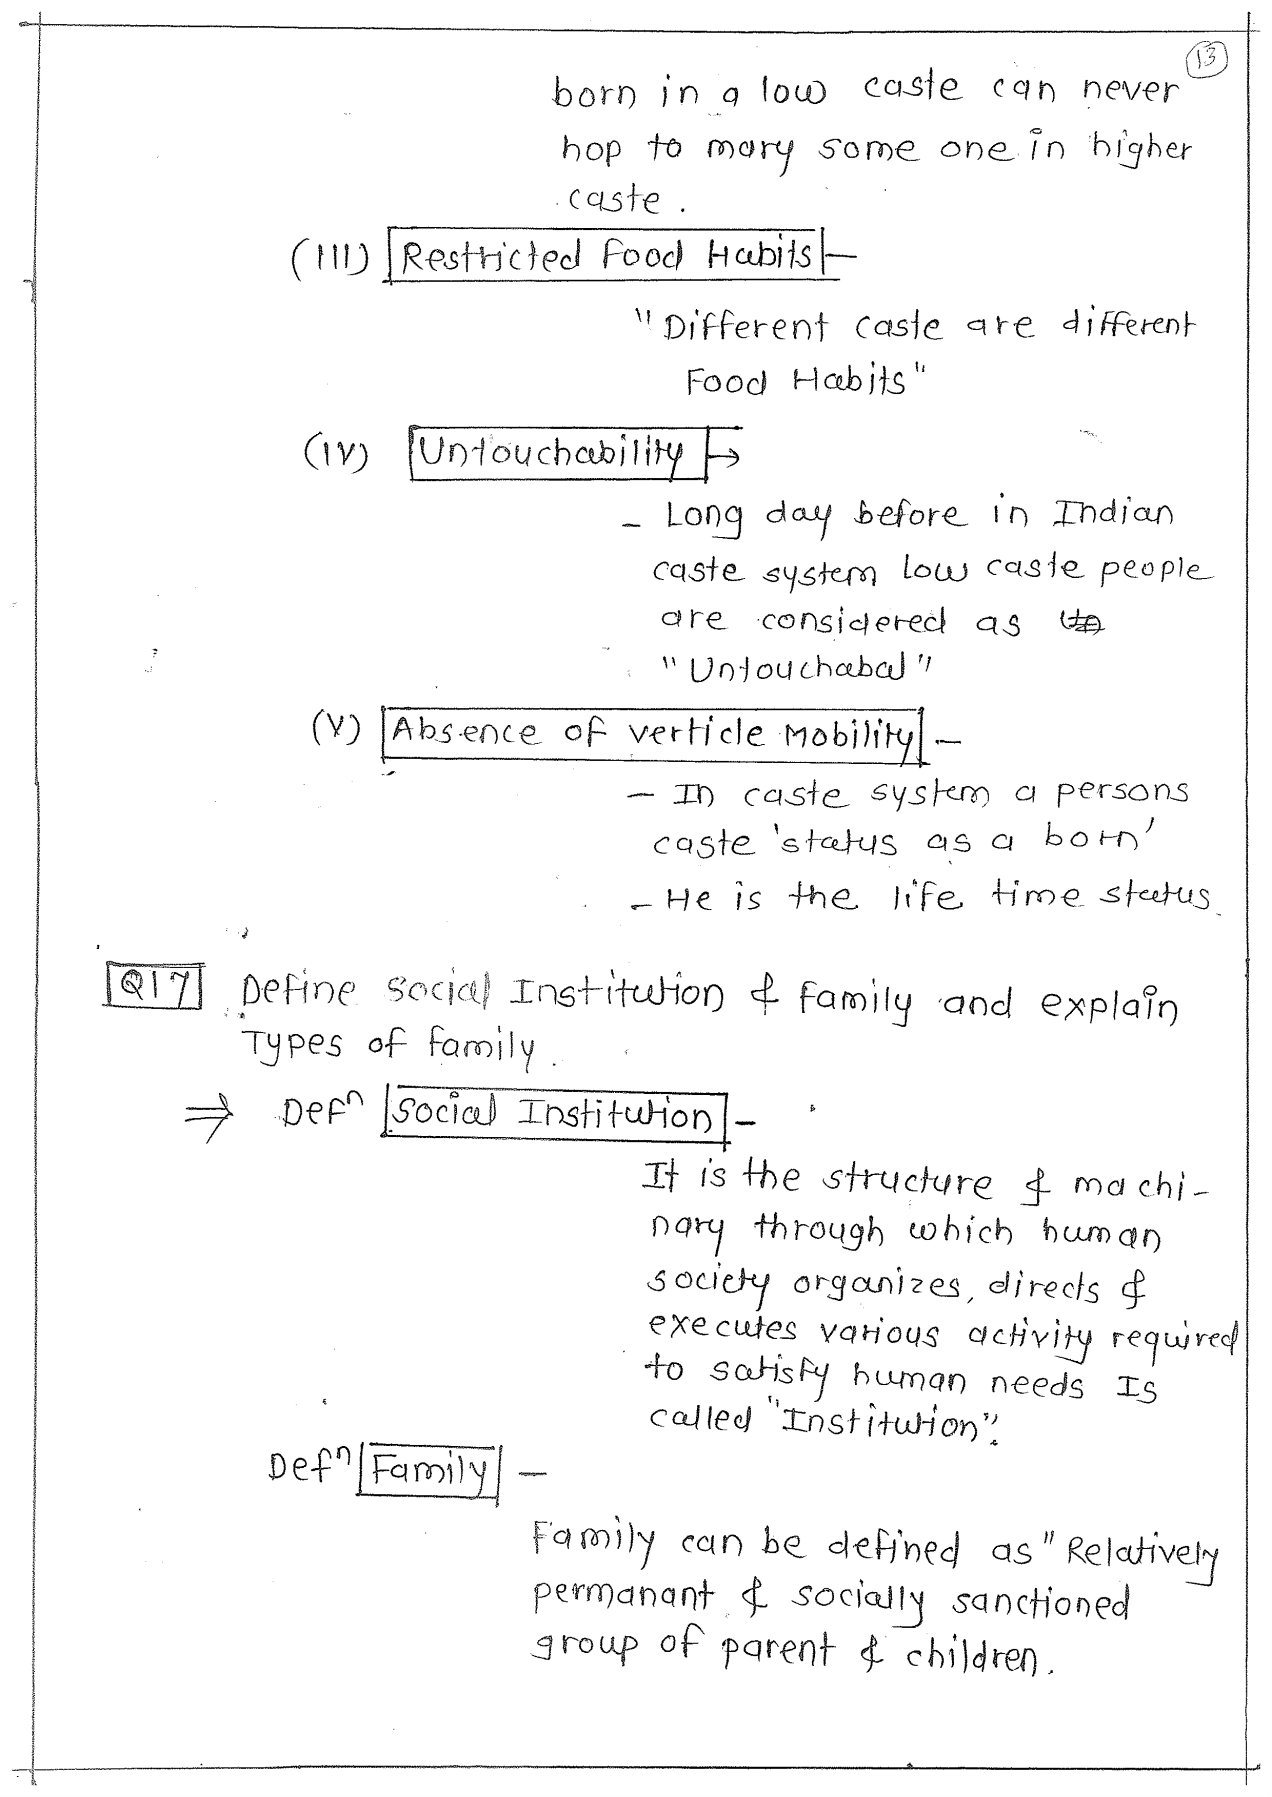 13
born in a low caste can never
hop to mary some one in higher
caste.
(III) Restricted Food Habits -
"Different caste are different
Food Habits"
(IV) Untouchability →
- Long day before in Indian
caste system low caste people
are considered as
"Untouchabal"
(V) Absence of verticle Mobility -
- In caste system a persons
caste 'status as a born'
- He is the life time status.
Q17 Define Social Institution & family and explain
Types of family.
⇒ Defⁿ Social Institution -
It is the structure & machi-
nary through which human
society organizes, directs &
executes various activity required
to satisfy human needs Is
called "Institution".
Defⁿ Family -
Family can be defined as "Relatively
permanant & socially sanctioned
group of parent & children.